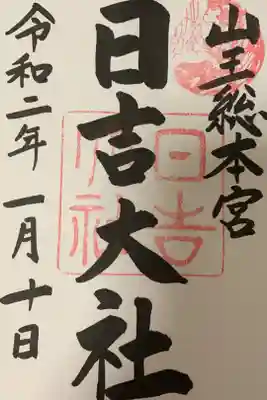 山王総本宮
日吉大社
令和二年一月十日
日吉大社